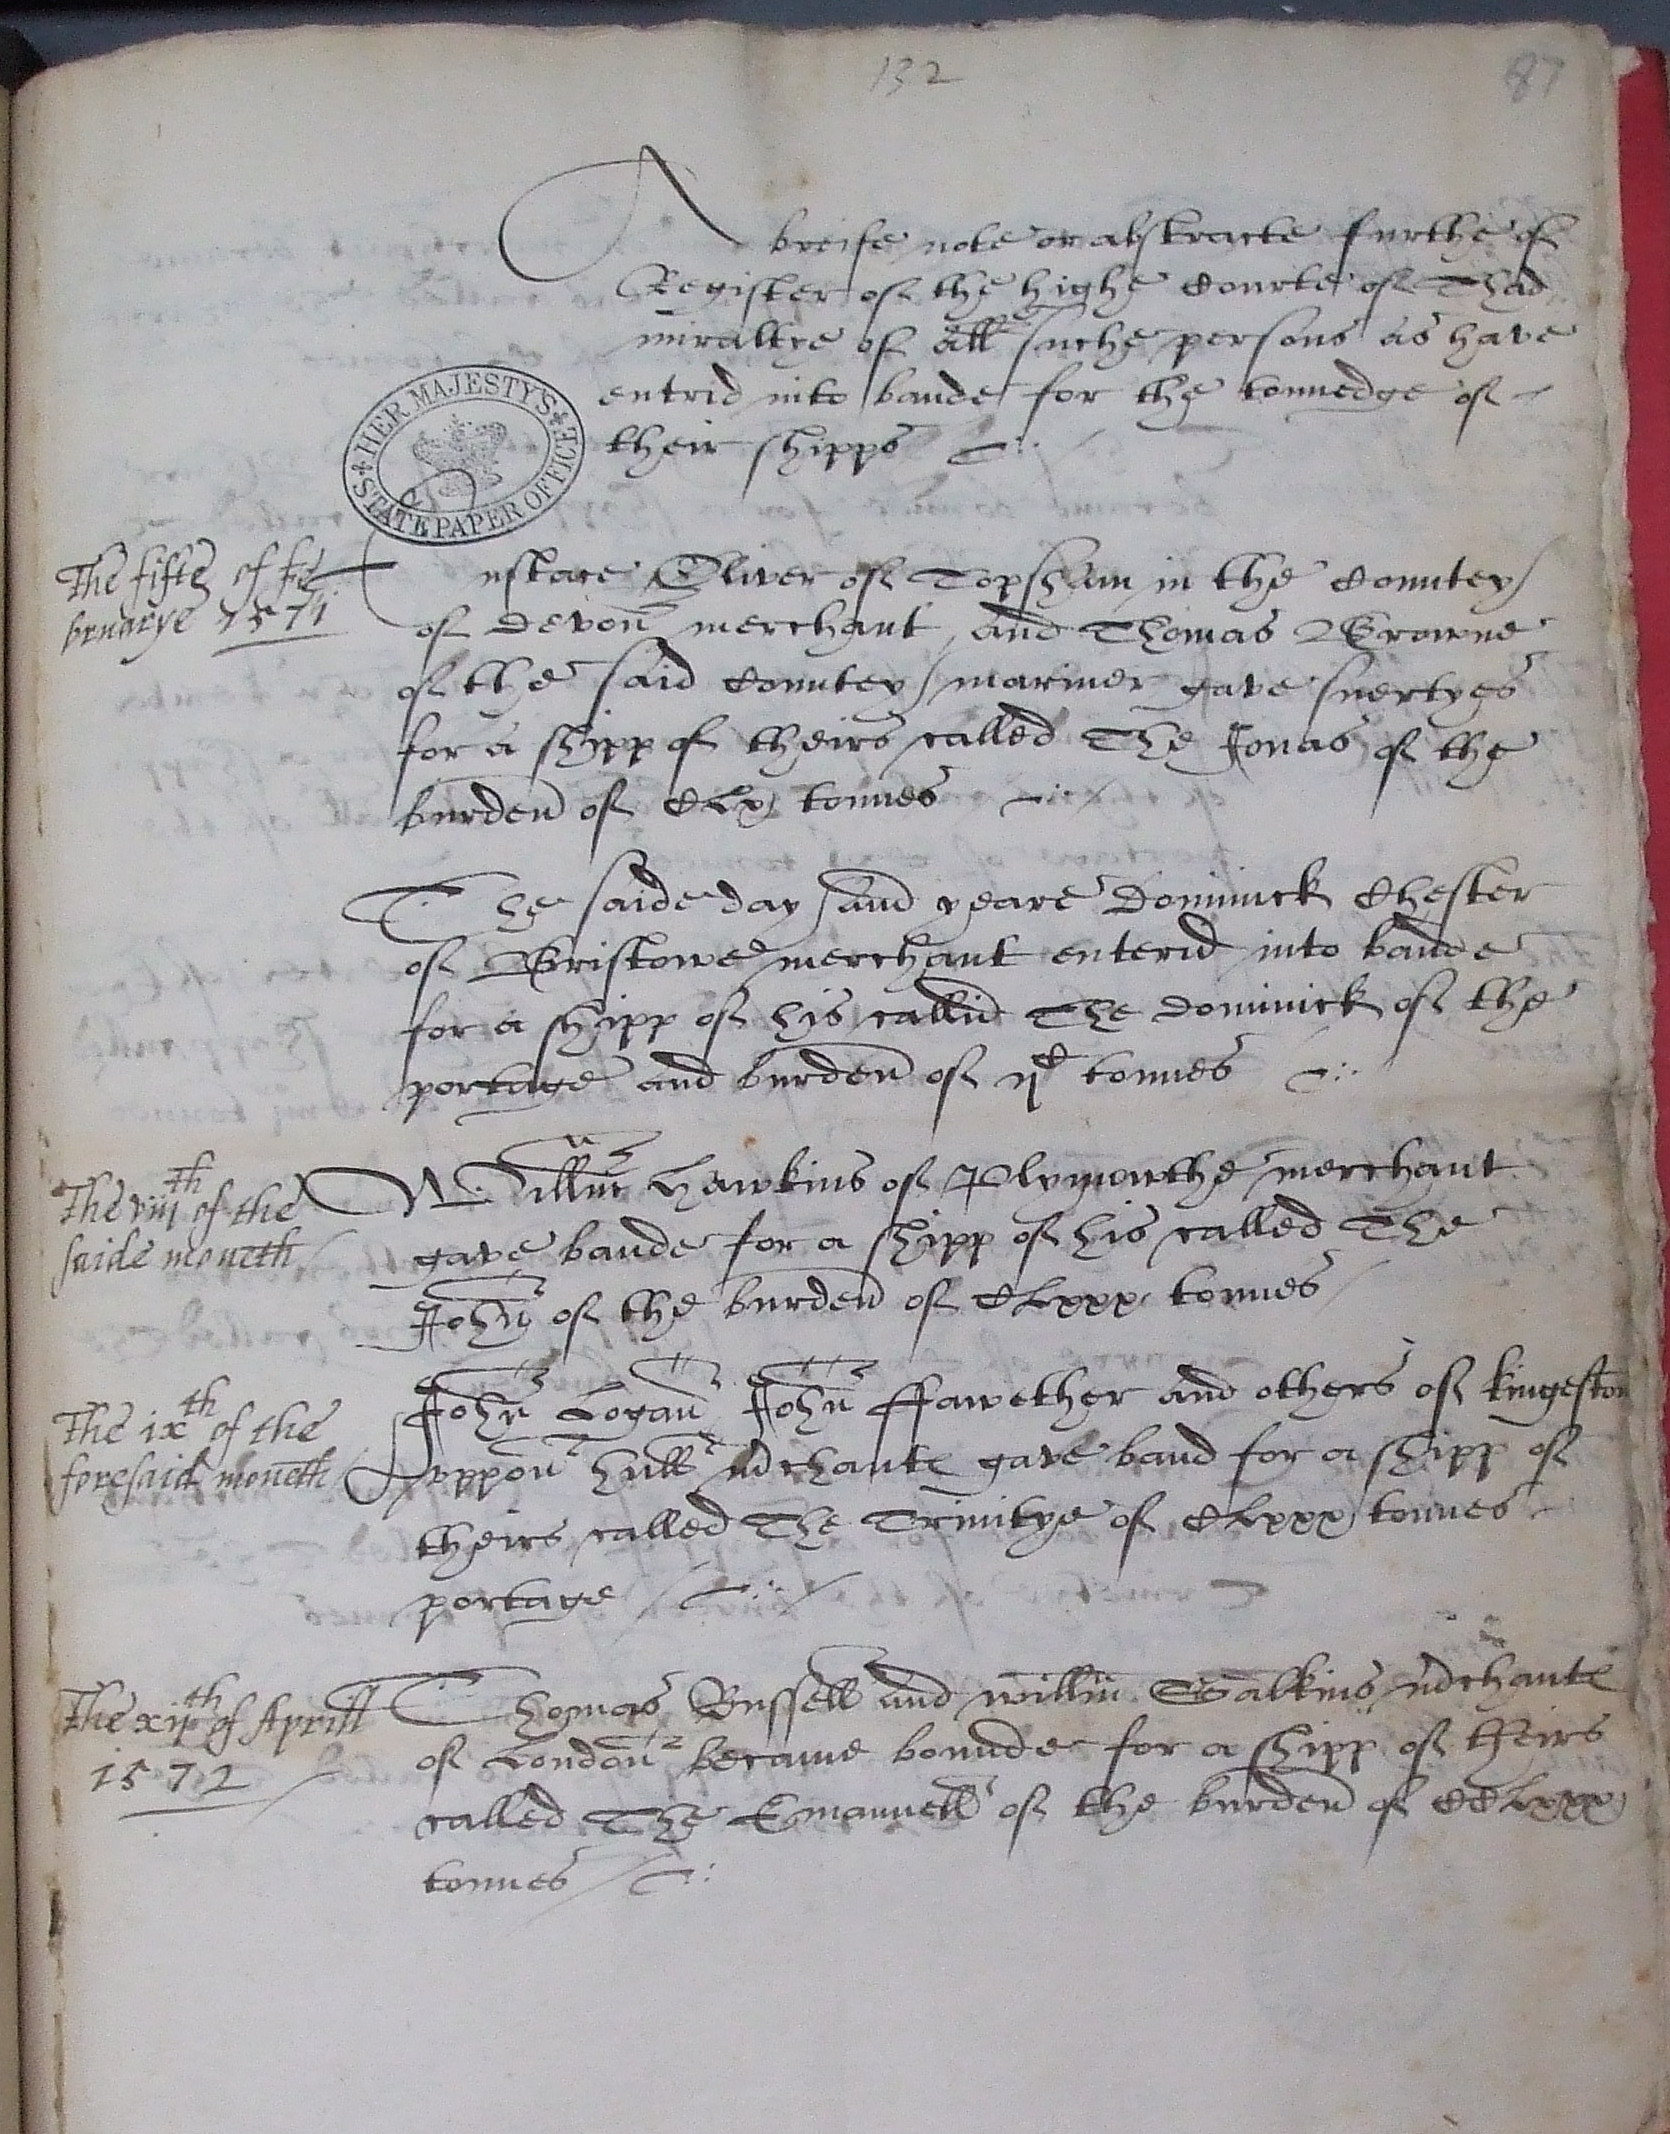 132
87
A breife note or abstracte furthe of
Register of the highe Courte of Thad
miraltye of all suche persons as have
entrid into bande for the tonnedge of
their shipps
HER MAJESTY'S STATE PAPER OFFICE
The fifte of fe
bruarye 1571
Eustace Oliver of Topsham in the Countey
of Devon merchant and Thomas Browne
of the said Countey mariner gave suertyes
for a shipp of theirs called The Jonas of the
burden of CLx tonnes
The saide day and yeare Dominick Chester
of Bristowe merchant enterid into bande
for a shipp of his callid The Dominick of the
portage and burden of ijC tonnes
The viijth of the
saide moneth
Willm Hawkins of Plymowthe merchant
gave bande for a shipp of his called The
John of the burden of CLxxx tonnes
The ixth of the
foresaid moneth
John Logan John ffawether and others of Kingeston
uppon Hull mchante gave band for a shipp of
theirs called The Trinitye of CLxxx tonnes
portage
The xijth of Aprill
1572
Thomas Bussell and willm Salkins mchante
of London became bounde for a shipp of theirs
called The Emanuell of the burden of CCLxxx
tonnes